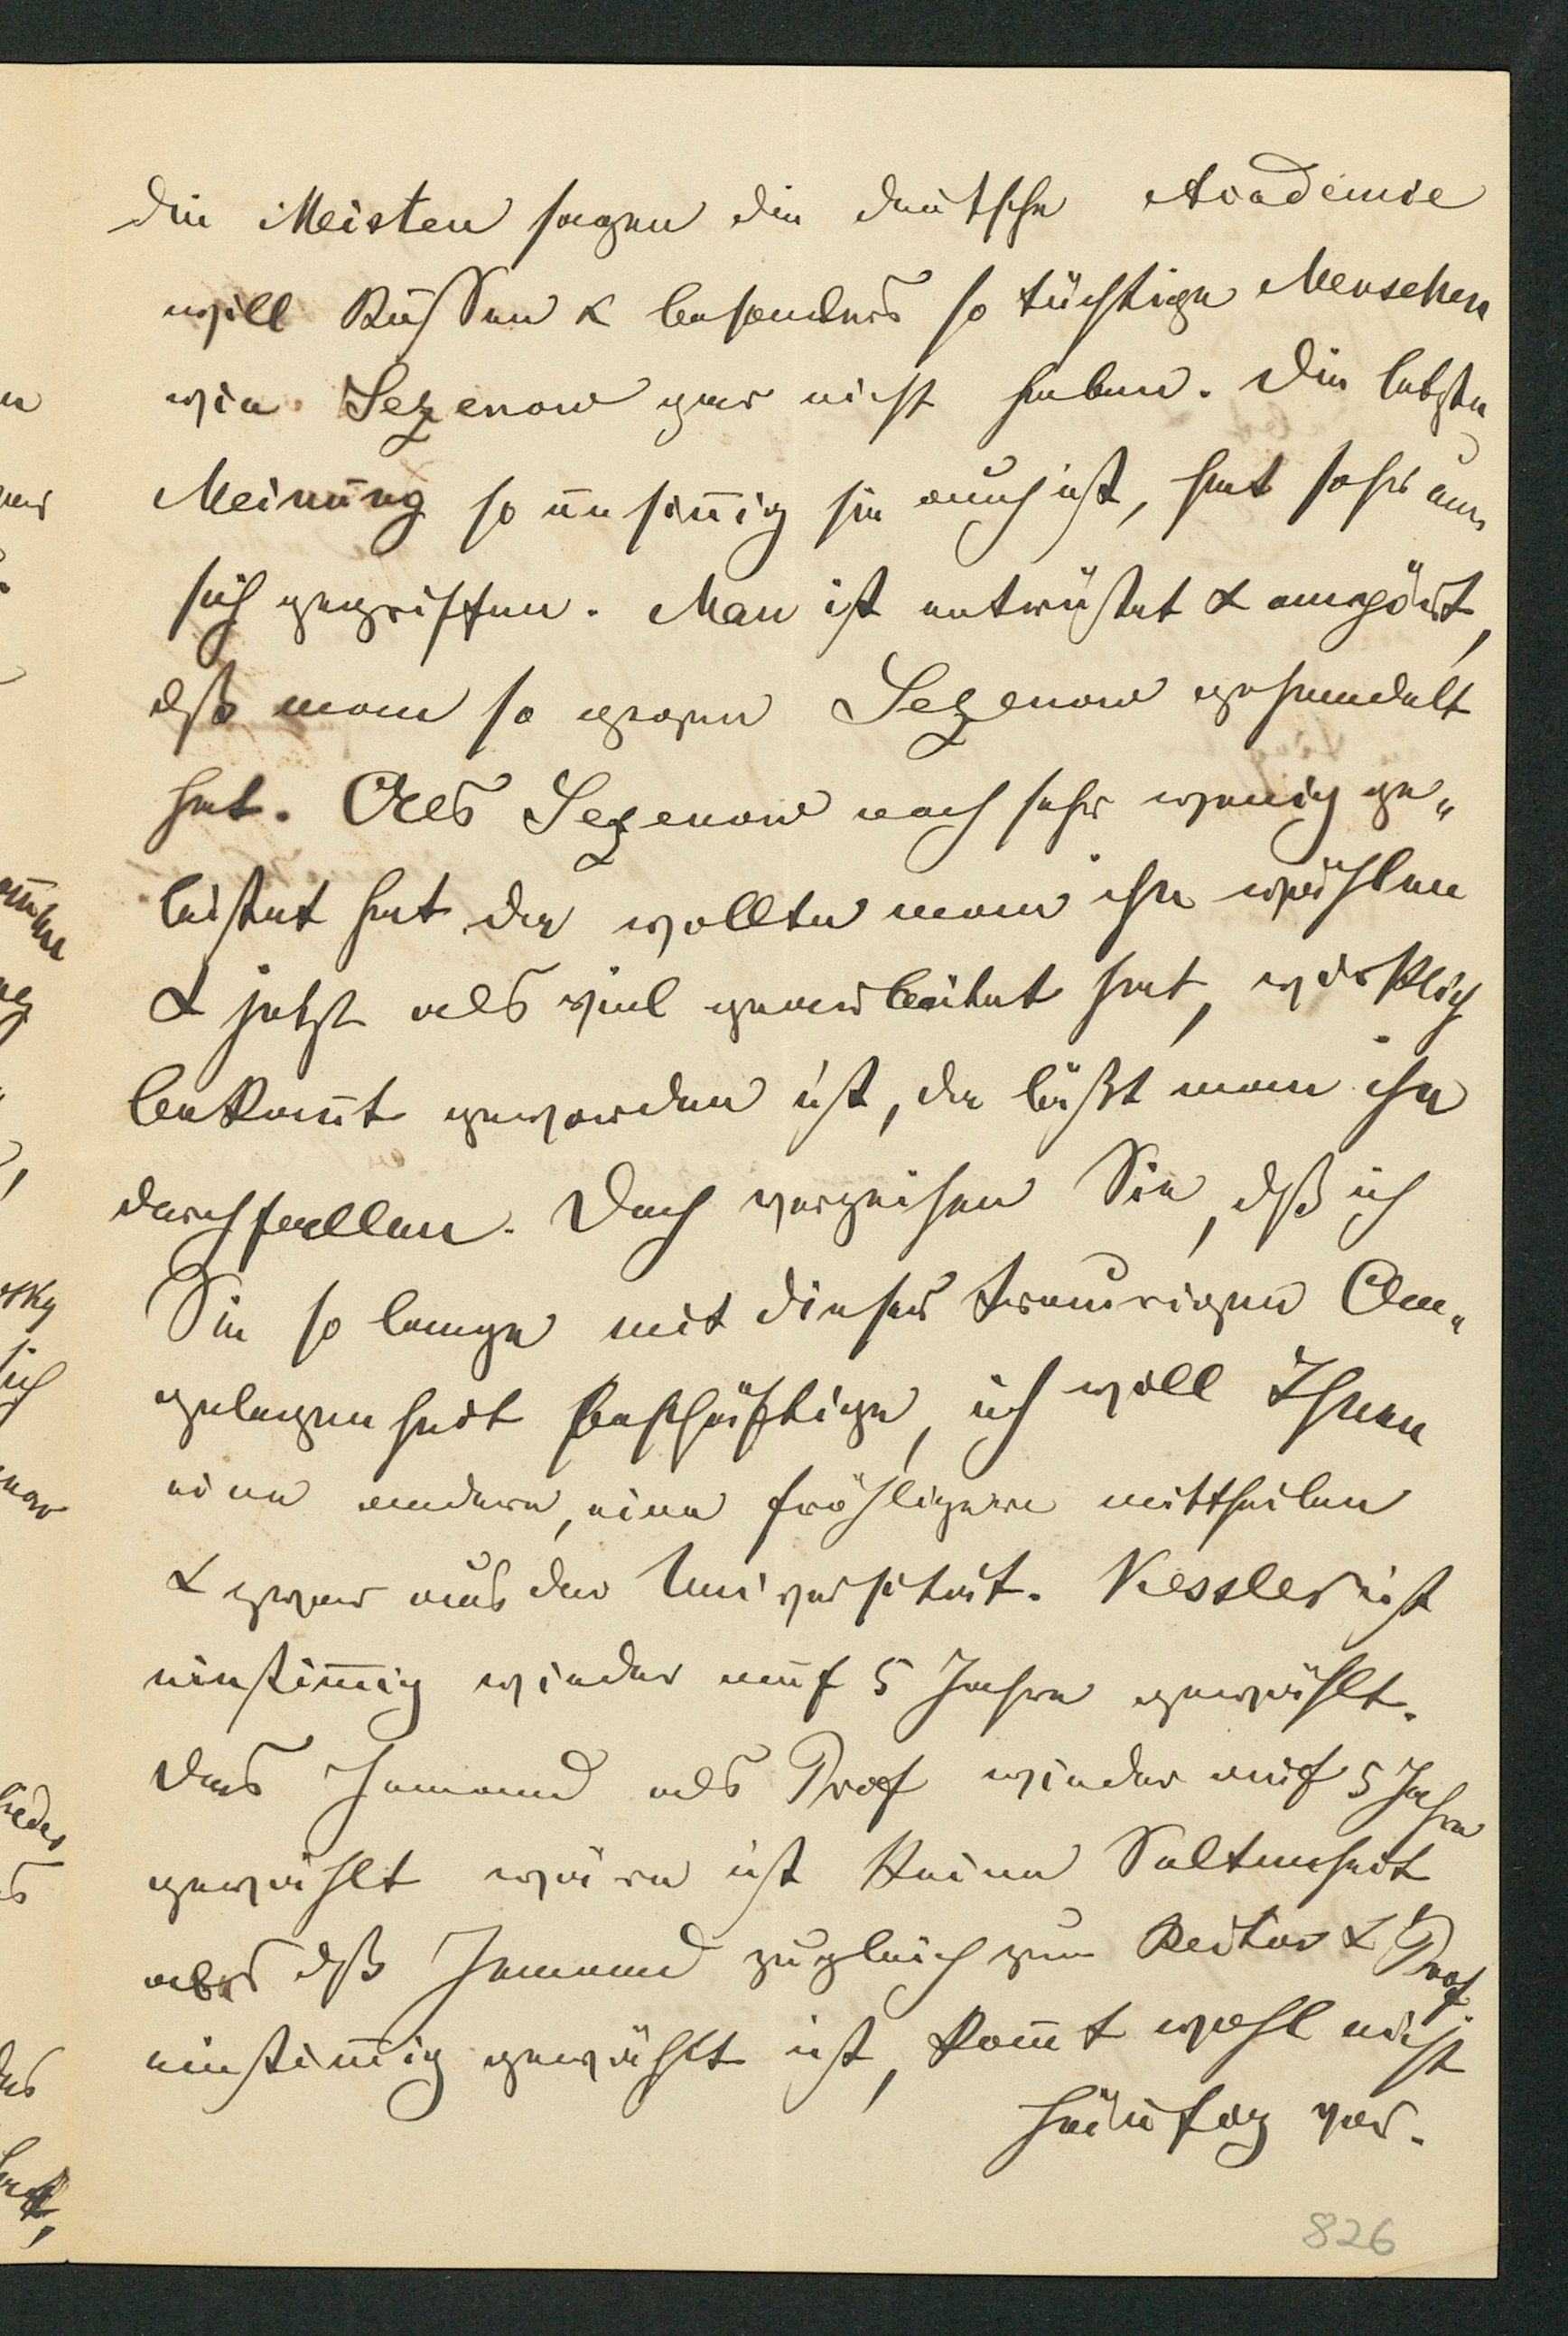 die Meisten sagen die deutsche Academie
will Russen & besonders so tüchtige Menschen
wie Sezenow gar nicht haben. Die letzte
Meinung so unsin̄ig sie auch ist, hat sehr um
sich gegriffen. Man ist entrüstet & empört,
dß man so gegen Sezenow gehandelt
hat. Als Sezenow noch sehr wenig ge„
leistet hat da wollte man ihn wählen
& jetzt als viel gearbeitet hat, wirklich
bekan̄t geworden ist, da läßt man ihn
durchfallen. Doch verzeihen Sie, dß ich
Sie so lange mit dieser traurigen An„
gelegenheit beschäftige, ich will Ihnen
eine andere, eine fröhligere mittheilen
& zwar aus der Universität. Kessler ist
einstim̄ig wieder auf 5 Jahre gewählt.
Das Jemand als Prof wieder auf 5 Jahre
gewählt wäre ist keine Seltenheit
aber dß Jemand zugleich zum Rector & Prof.
einstim̄ig gewählt ist, kom̄t wohl nicht
häufig vor.
826